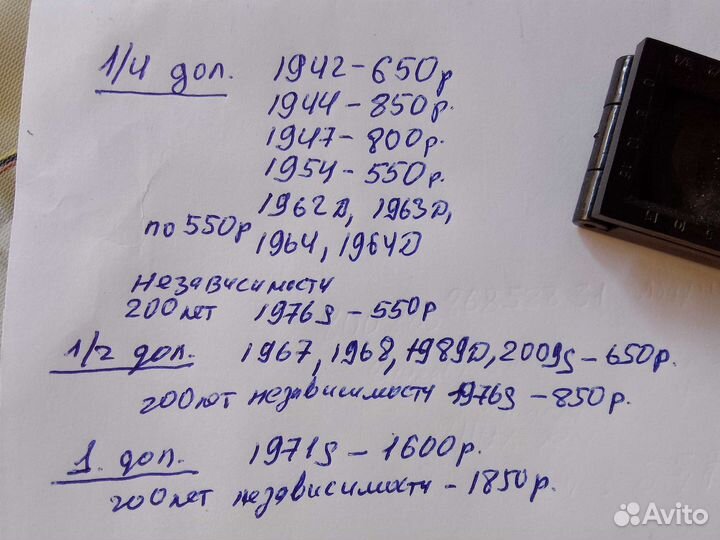 1/4 дол. 1942-650р
1944-850р.
1947-800р.
1954-550р.
1962D, 1963D,
по 550р 1964, 1964D
Независимости
200 лет 1976S-550р
1/2 дол. 1967, 1968, 1989D, 2009S-650р.
200 лет независимости 1976S-850р.
1 дол. 1971S-1600р.
200 лет независимости-1850р.
Avito